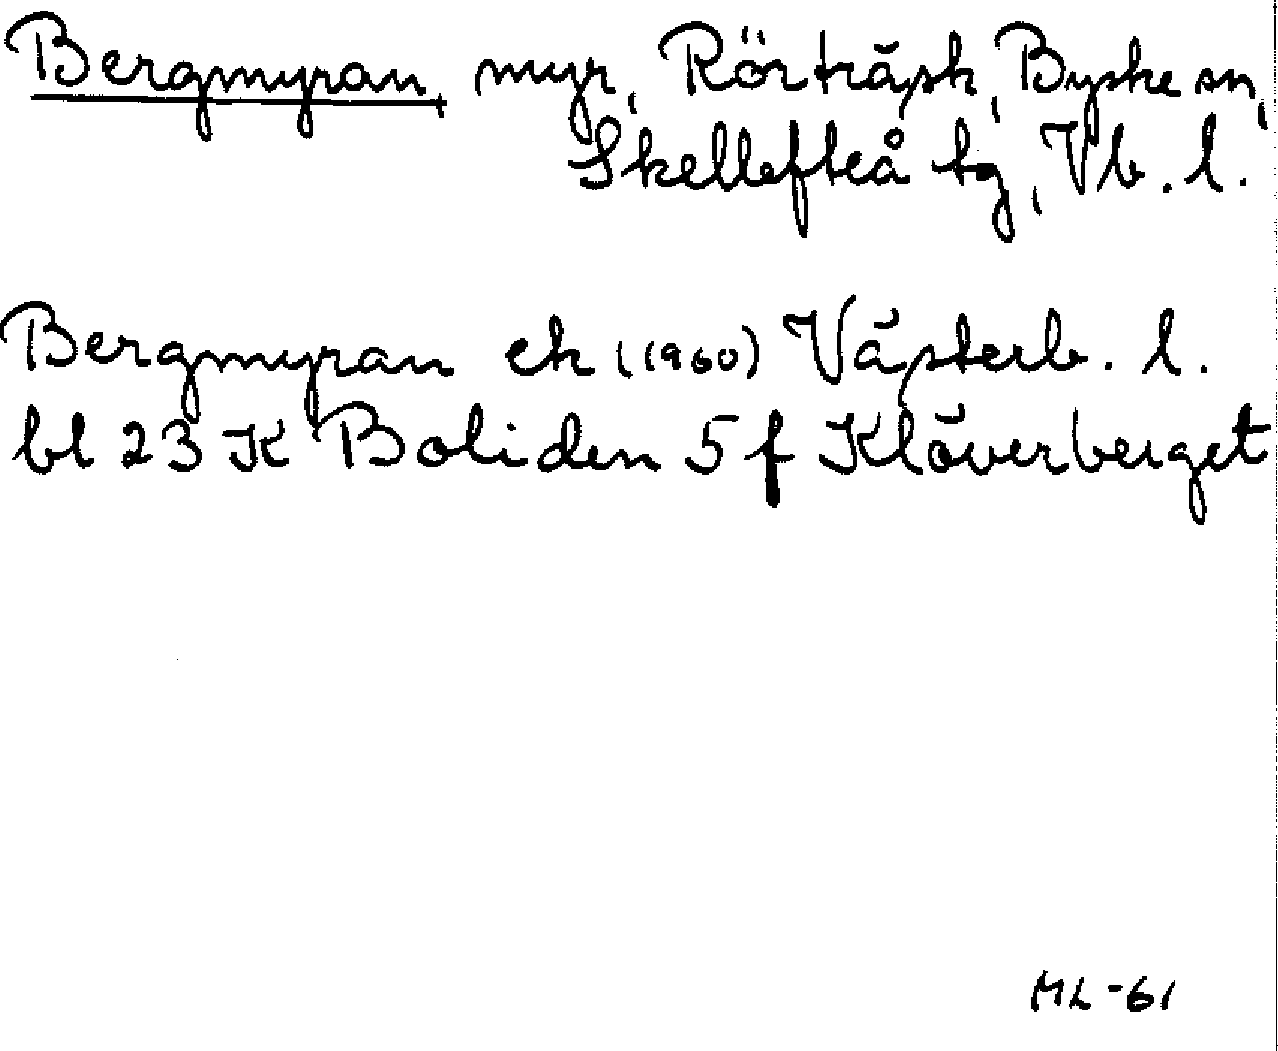 Bergmyran, myr, Rörträsk, Byske sn,
Skellefteå tg, Vb. l.
Bergmyran ek (1960) Västerb. l.
bl 23 K Boliden 5 f Klöverberget
ML-61